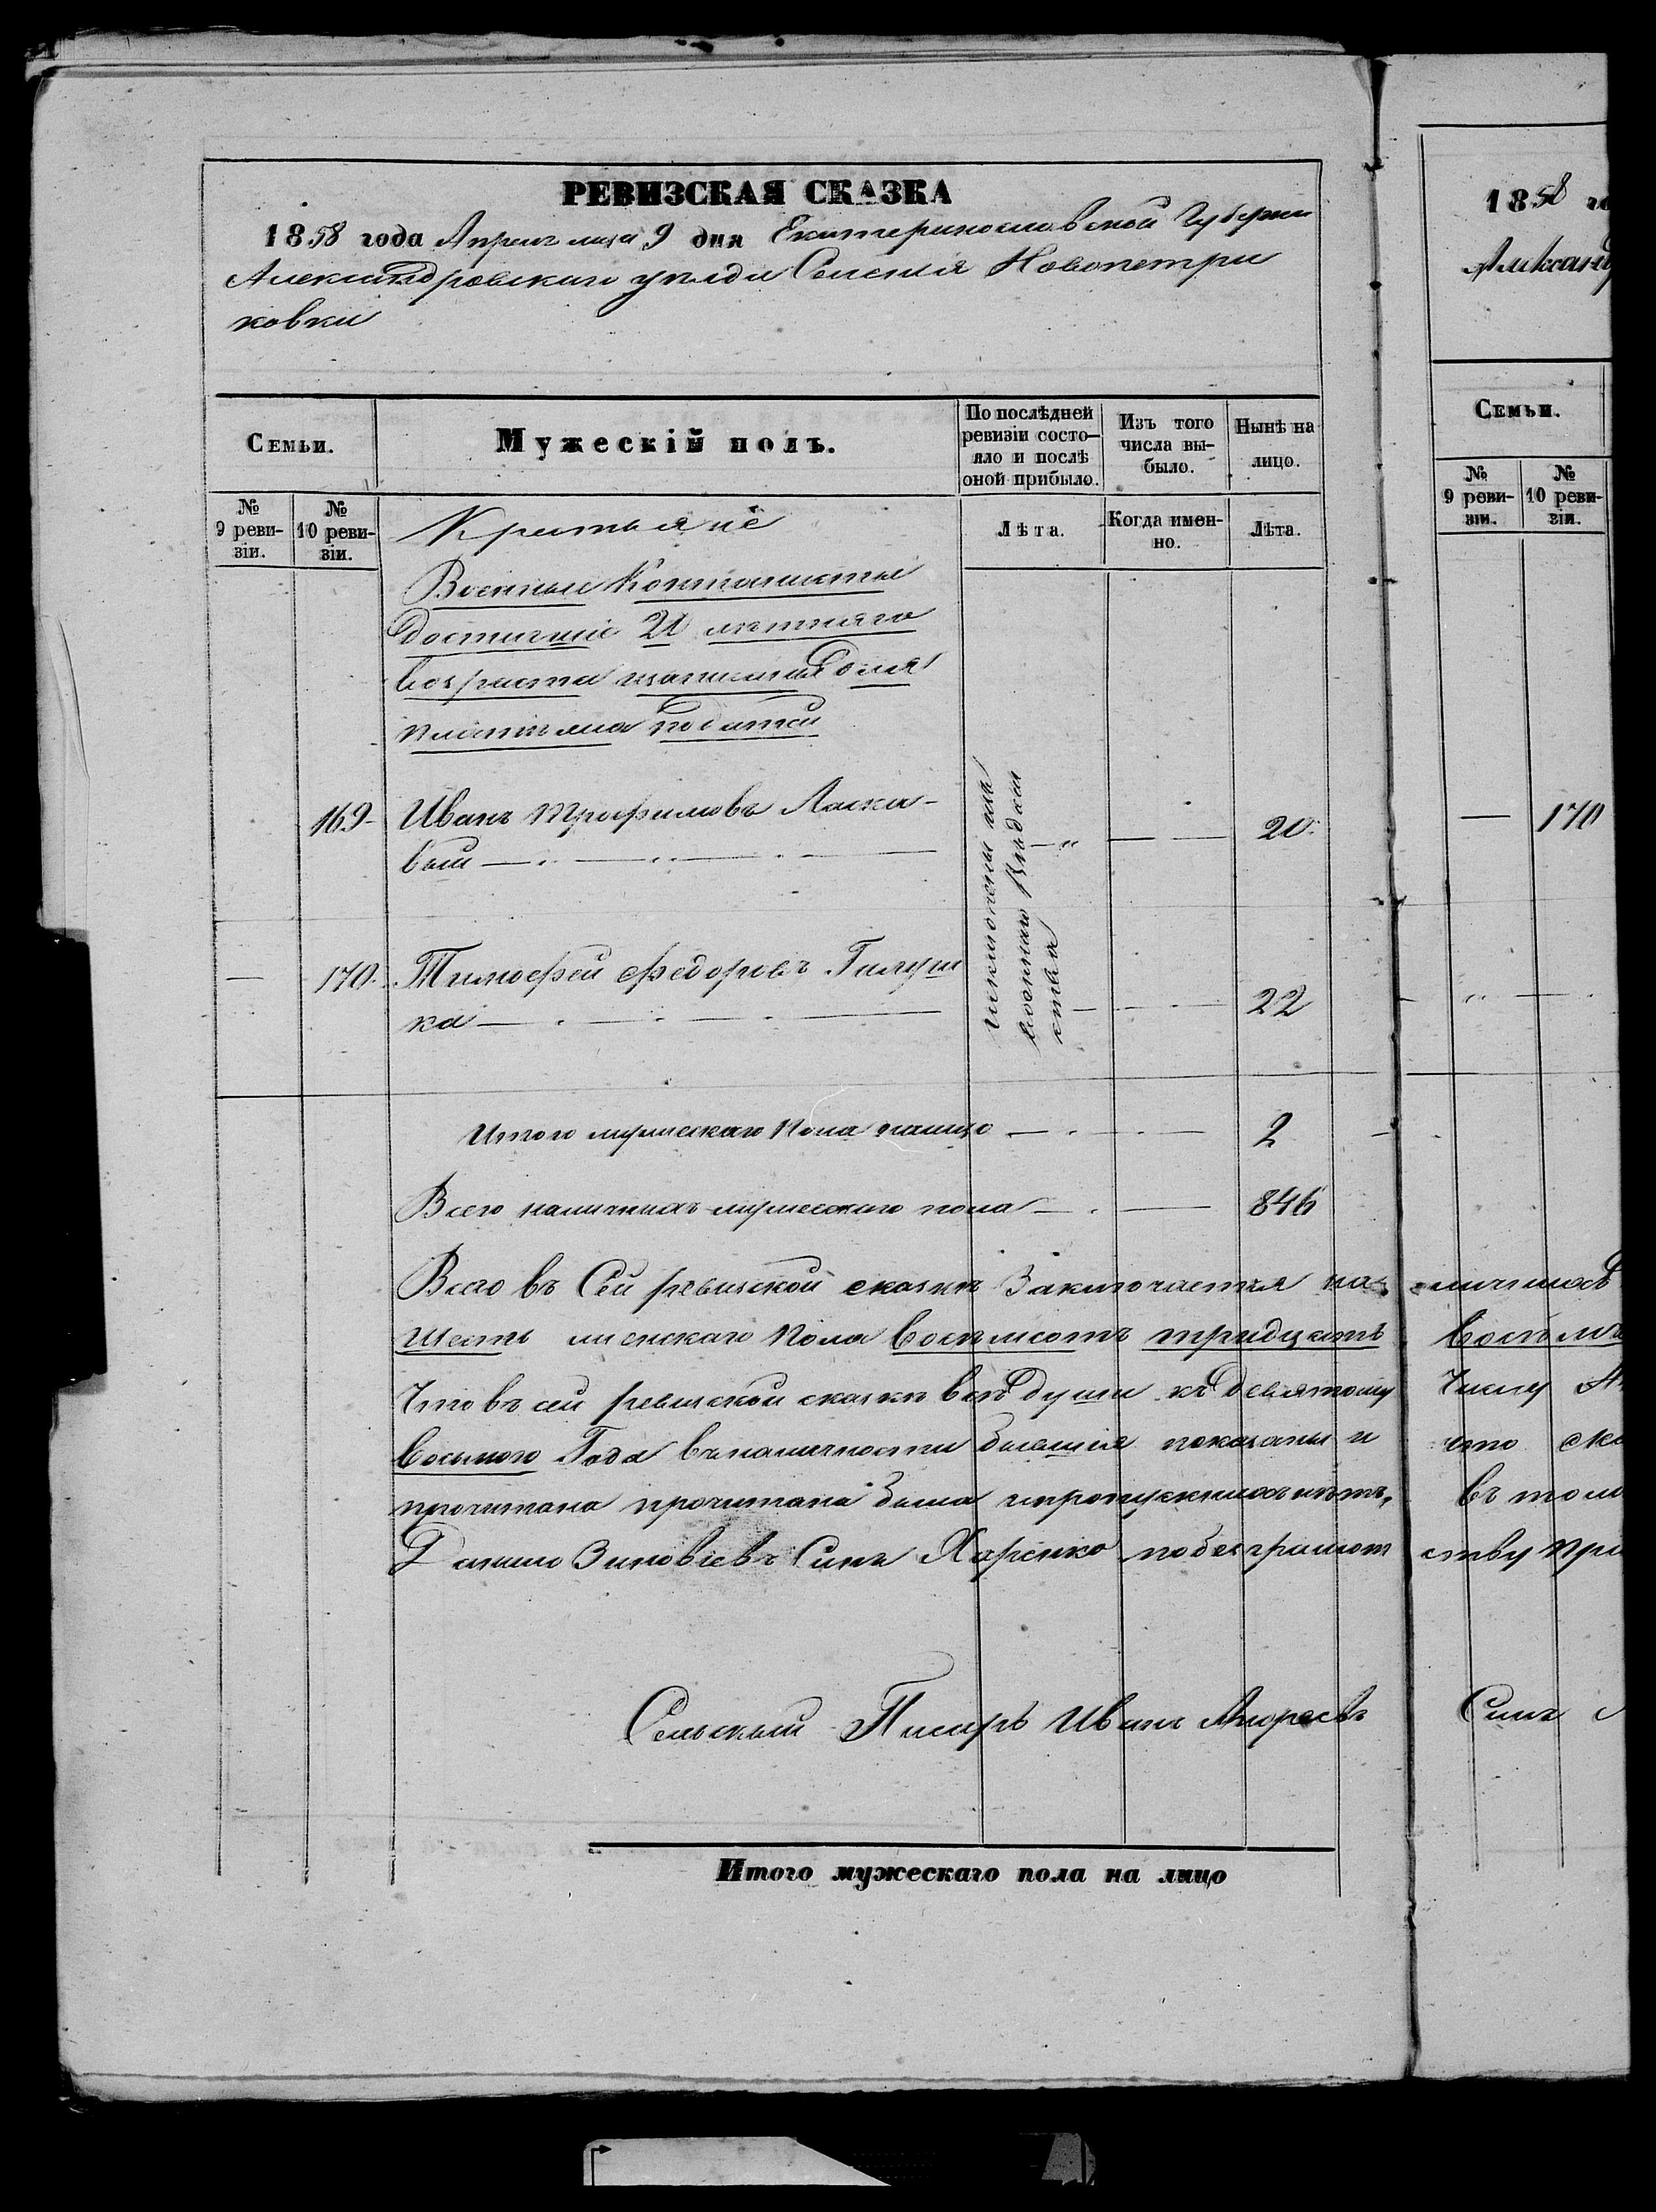 РЕВИЗСКАЯ СКАЗКА
1858 года Апреля месяца 9 дня Екатеринославской Губернии
Александровскаго уезда Селенія Новопетри
ковки
Семьи.
Мужескій полъ.
По послѣдней ревизіи состо-
яло и послѣ оной прибыло.
Изъ того числа вы-
было.
Нынѣ на лицо.
№ 9 реви-
зіи.
№ 10 реви-
зіи.
Лѣта.
Когда имен-
но.
Лѣта.
Крестьяне
Военные Кантонисты
достигшіе 21 летняго
возраста для
платежа податей
169 Иванъ Трофимовъ Ласка-
вый 20.
170. Тимофей Федоровъ Галуш
ка 22
военнаго
Итого мужескаго Пола налицо 2
Всего наличныхъ мужескаго пола 846
Всего въ Сей ревизской сказкѣ Заключается на
шесть женскаго Пола восемьсотъ тридцать
Что въ сей ревизской сказкѣ все души къ девятому
восьмого Года въ наличности бывшія показаны и
прочитана прочитана была и пропускныхъ нетъ,
Данило Зиновіевъ Сынъ Харенко по безграмот
Сельский Писарь Иванъ Андреевъ
Итого мужескаго пола на лицо
1858 го
Александ
Семьи.
№ 9 реви-
зіи.
№ 10 реви-
зіи.
170
личныхъ
восемь
Числу
что
въ том
ству при
Сынъ